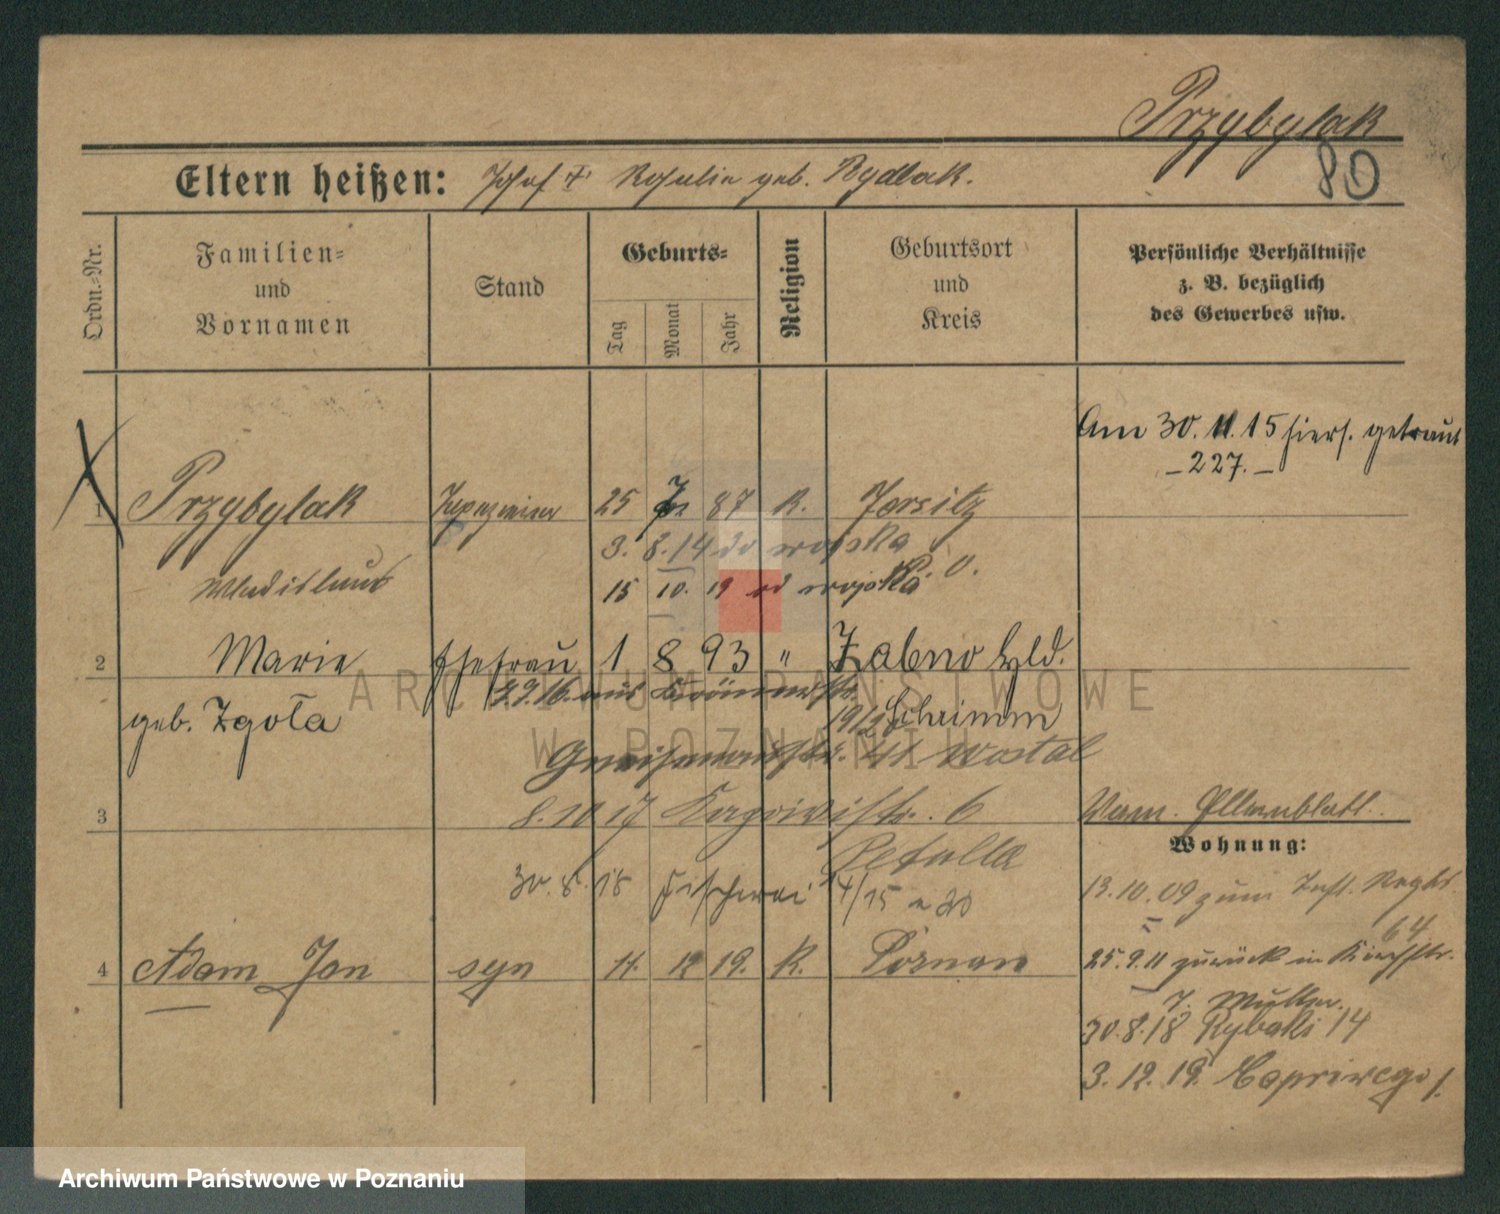 Przybylak
80
Eltern heißen: Josef † Rosalie geb. Rydlak.
Ordn.-Nr.
Familien- und Vornamen
Stand
Geburts-
Tag
Monat
Jahr
Religion
Geburtsort und Kreis
Persönliche Verhältnisse
z. B. bezüglich
des Gewerbes usw.
Am 30. 11. 15 hiers. getraut
- 227. -
1 Przybylak Tapezierer 25 87 K. Jersitz
3. 8. 14 do wojska
Wladislaus 15 10. 19 od wojska P. O.
2 Marie Ehefrau 1 8 93 " Żabno Hld.
geb. Zgoła 16. aus
19/2 Schrimm
Gneisenaustr. 11 Wostal
3 8. 10 17 6
Petalla
30. 8. 18 Fischerei 4/15 a 20
Wohnung:
13. 10. 09 zum Inft. Regts.
64
4 Adam Jan syn 11. 12 19. K. Poznan
25. 9. 11 zurück in
J. Müller.
30. 8. 18 Rybaki 14
3. 12. 19. Capriwego 1.
ARCHIWUM PAŃSTWOWE
W POZNANIU
Archiwum Państwowe w Poznaniu